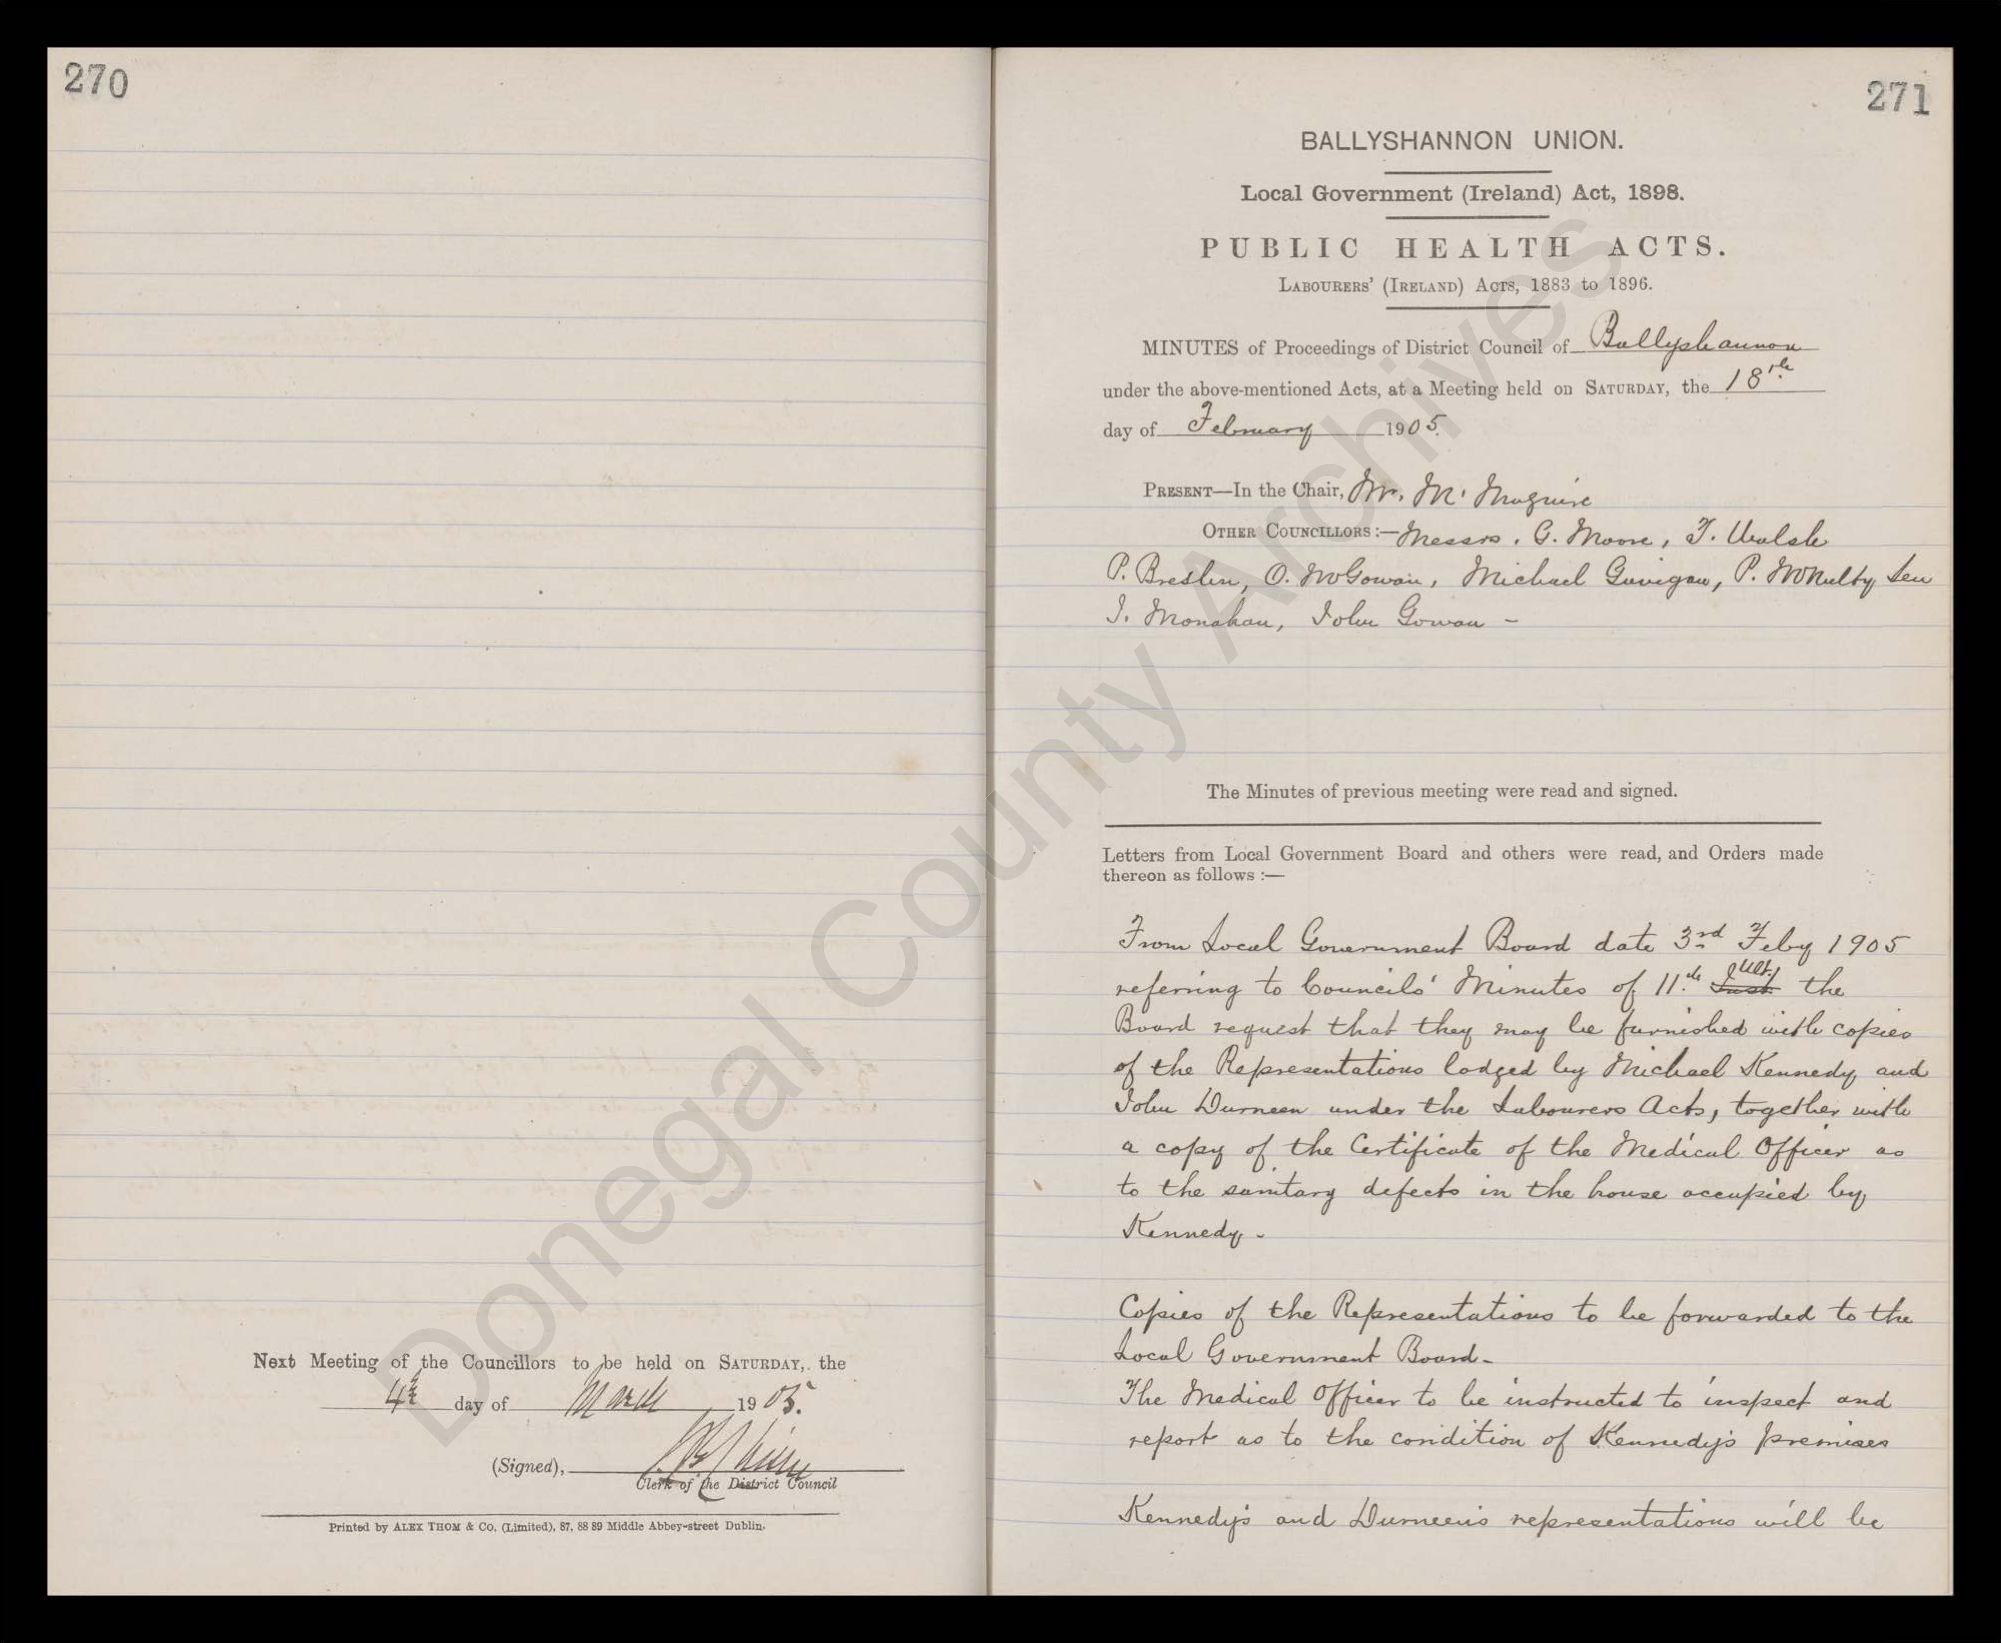 270
Next Meeting of the Councillors to be held on SATURDAY, the
4th day of March 1905.
(Signed),
Clerk of the District Council
Printed by ALEX THOM & Co. (Limited), 87, 88 89 Middle Abbey-street Dublin.
271
BALLYSHANNON UNION.
Local Government (Ireland) Act, 1898.
PUBLIC HEALTH ACTS.
LABOURERS' (IRELAND) ACTS, 1883 to 1896.
MINUTES of Proceedings of District Council of Ballyshannon
under the above-mentioned Acts, at a Meeting held on SATURDAY, the 18th
day of February 1905.
PRESENT—In the Chair, Mr. M. Maguire
OTHER COUNCILLORS:—Messrs. G. Moore, T. Walsh
P. Breslin, O. McGowan, Michael Gavigan, P. McNulty Sen
J. Monahan, John Gowan -
The Minutes of previous meeting were read and signed.
Letters from Local Government Board and others were read, and Orders made
thereon as follows :—
From Local Government Board date 3rd Feby 1905
referring to Councils' Minutes of 11th Inst. Ult. the
Board request that they may be furnished with copies
of the Representations lodged by Michael Kennedy and
John Durneen under the Labourers Acts, together with
a copy of the Certificate of the Medical Officer as
to the sanitary defects in the house occupied by
Kennedy -
Copies of the Representations to be forwarded to the
Local Government Board -
The Medical Officer to be instructed to inspect and
report as to the condition of Kennedy's premises
Kennedy's and Durneen's representations will be
Donegal County Archives